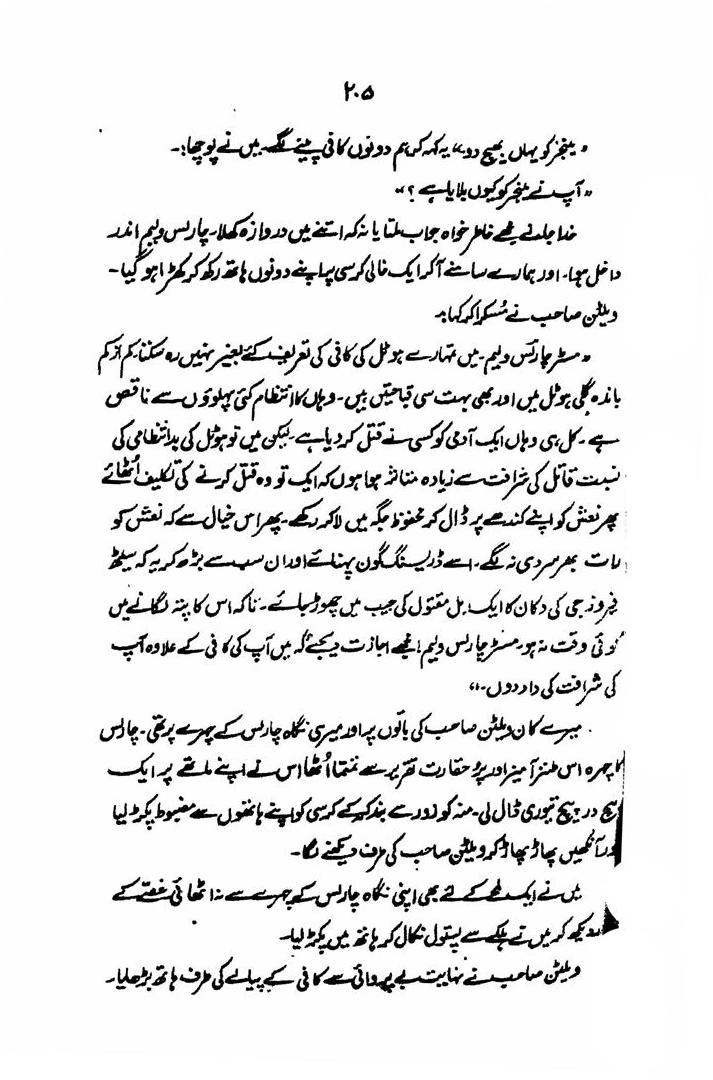 ۲۰۵
"مینجر کو یہاں بھیج دو" یہ کہہ کر ہم دونوں کافی پینے لگے۔ میں نے پوچھا:۔
"آپ نے مینجر کو کیوں بلایا ہے؟"
خدا جانے مجھے خاطر خواہ جواب ملتا یا نہ کہ اتنے میں دروازہ کھلا۔ چارلس ولیم اندر
داخل ہوا۔ اور ہمارے سامنے آکر ایک خالی کرسی پہ اپنے دونوں ہاتھ رکھ کر کھڑا ہو گیا۔
ویلٹن صاحب نے مُسکرا کر کہا:۔
"مسٹر چارلس ولیم۔ میں تمہارے ہوٹل کی کافی کی تعریف کئے بغیر نہیں رہ سکتا۔ کم از کم
باندہ گلی ہوٹل میں اور بھی بہت سی قباحتیں ہیں۔ وہاں کا انتظام کئی پہلوؤں سے ناقص
ہے۔ کل ہی وہاں ایک آدمی کو کسی نے قتل کر دیا ہے۔ لیکن میں تو ہوٹل کی بدانتظامی کی
نسبت قاتل کی شرافت سے زیادہ متاثر ہوا ہوں کہ ایک تو وہ قتل کرنے کی تکلیف اُٹھائے
پھر نعش کو اپنے کندھے پر ڈال کر محفوظ جگہ میں لا کر رکھے۔ پھر اس خیال سے کہ نعش کو
رات بھر سردی نہ لگے۔ اسے ڈریسنگ گون پہنائے اور ان سب سے بڑھ کر یہ کہ سیٹھ
فیروز جی کی دکان کا ایک بل مقتول کی جیب میں چھوڑ جائے۔ تاکہ اس کا پتہ لگانے میں
کوئی وقت نہ ہو۔ مسٹر چارلس ولیم! مجھے اجازت دیجئے کہ میں آپ کی کافی کے علاوہ آپ
کی شرافت کی داد دوں۔"
میرے کان ویلٹن صاحب کی باتوں پر اور میری نگاہ چارلس کے چہرے پر تھی۔ چارلس
کا چہرہ اس طنز آمیز اور پُر حقارت تقریر سے تمتما اُٹھا اس نے اپنے ماتھے پر ایک
پیچ در پیچ تیوری ڈال لی۔ منہ کو زور سے بند کر کے کرسی کو اپنے ہاتھوں سے مضبوط پکڑ لیا
اور آنکھیں پھاڑ پھاڑ کر ویلٹن صاحب کی طرف دیکھنے لگا۔
میں نے ایک لمحے کے لئے بھی اپنی نگاہ چارلس کے چہرے سے نہ اٹھائی غصے کے
دیکھ کر میں نے ہلکے سے پستول نکال کر ہاتھ میں پکڑ لیا۔
ویلٹن صاحب نے نہایت بے پروائی سے کافی کے پیالے کی طرف ہاتھ بڑھایا۔